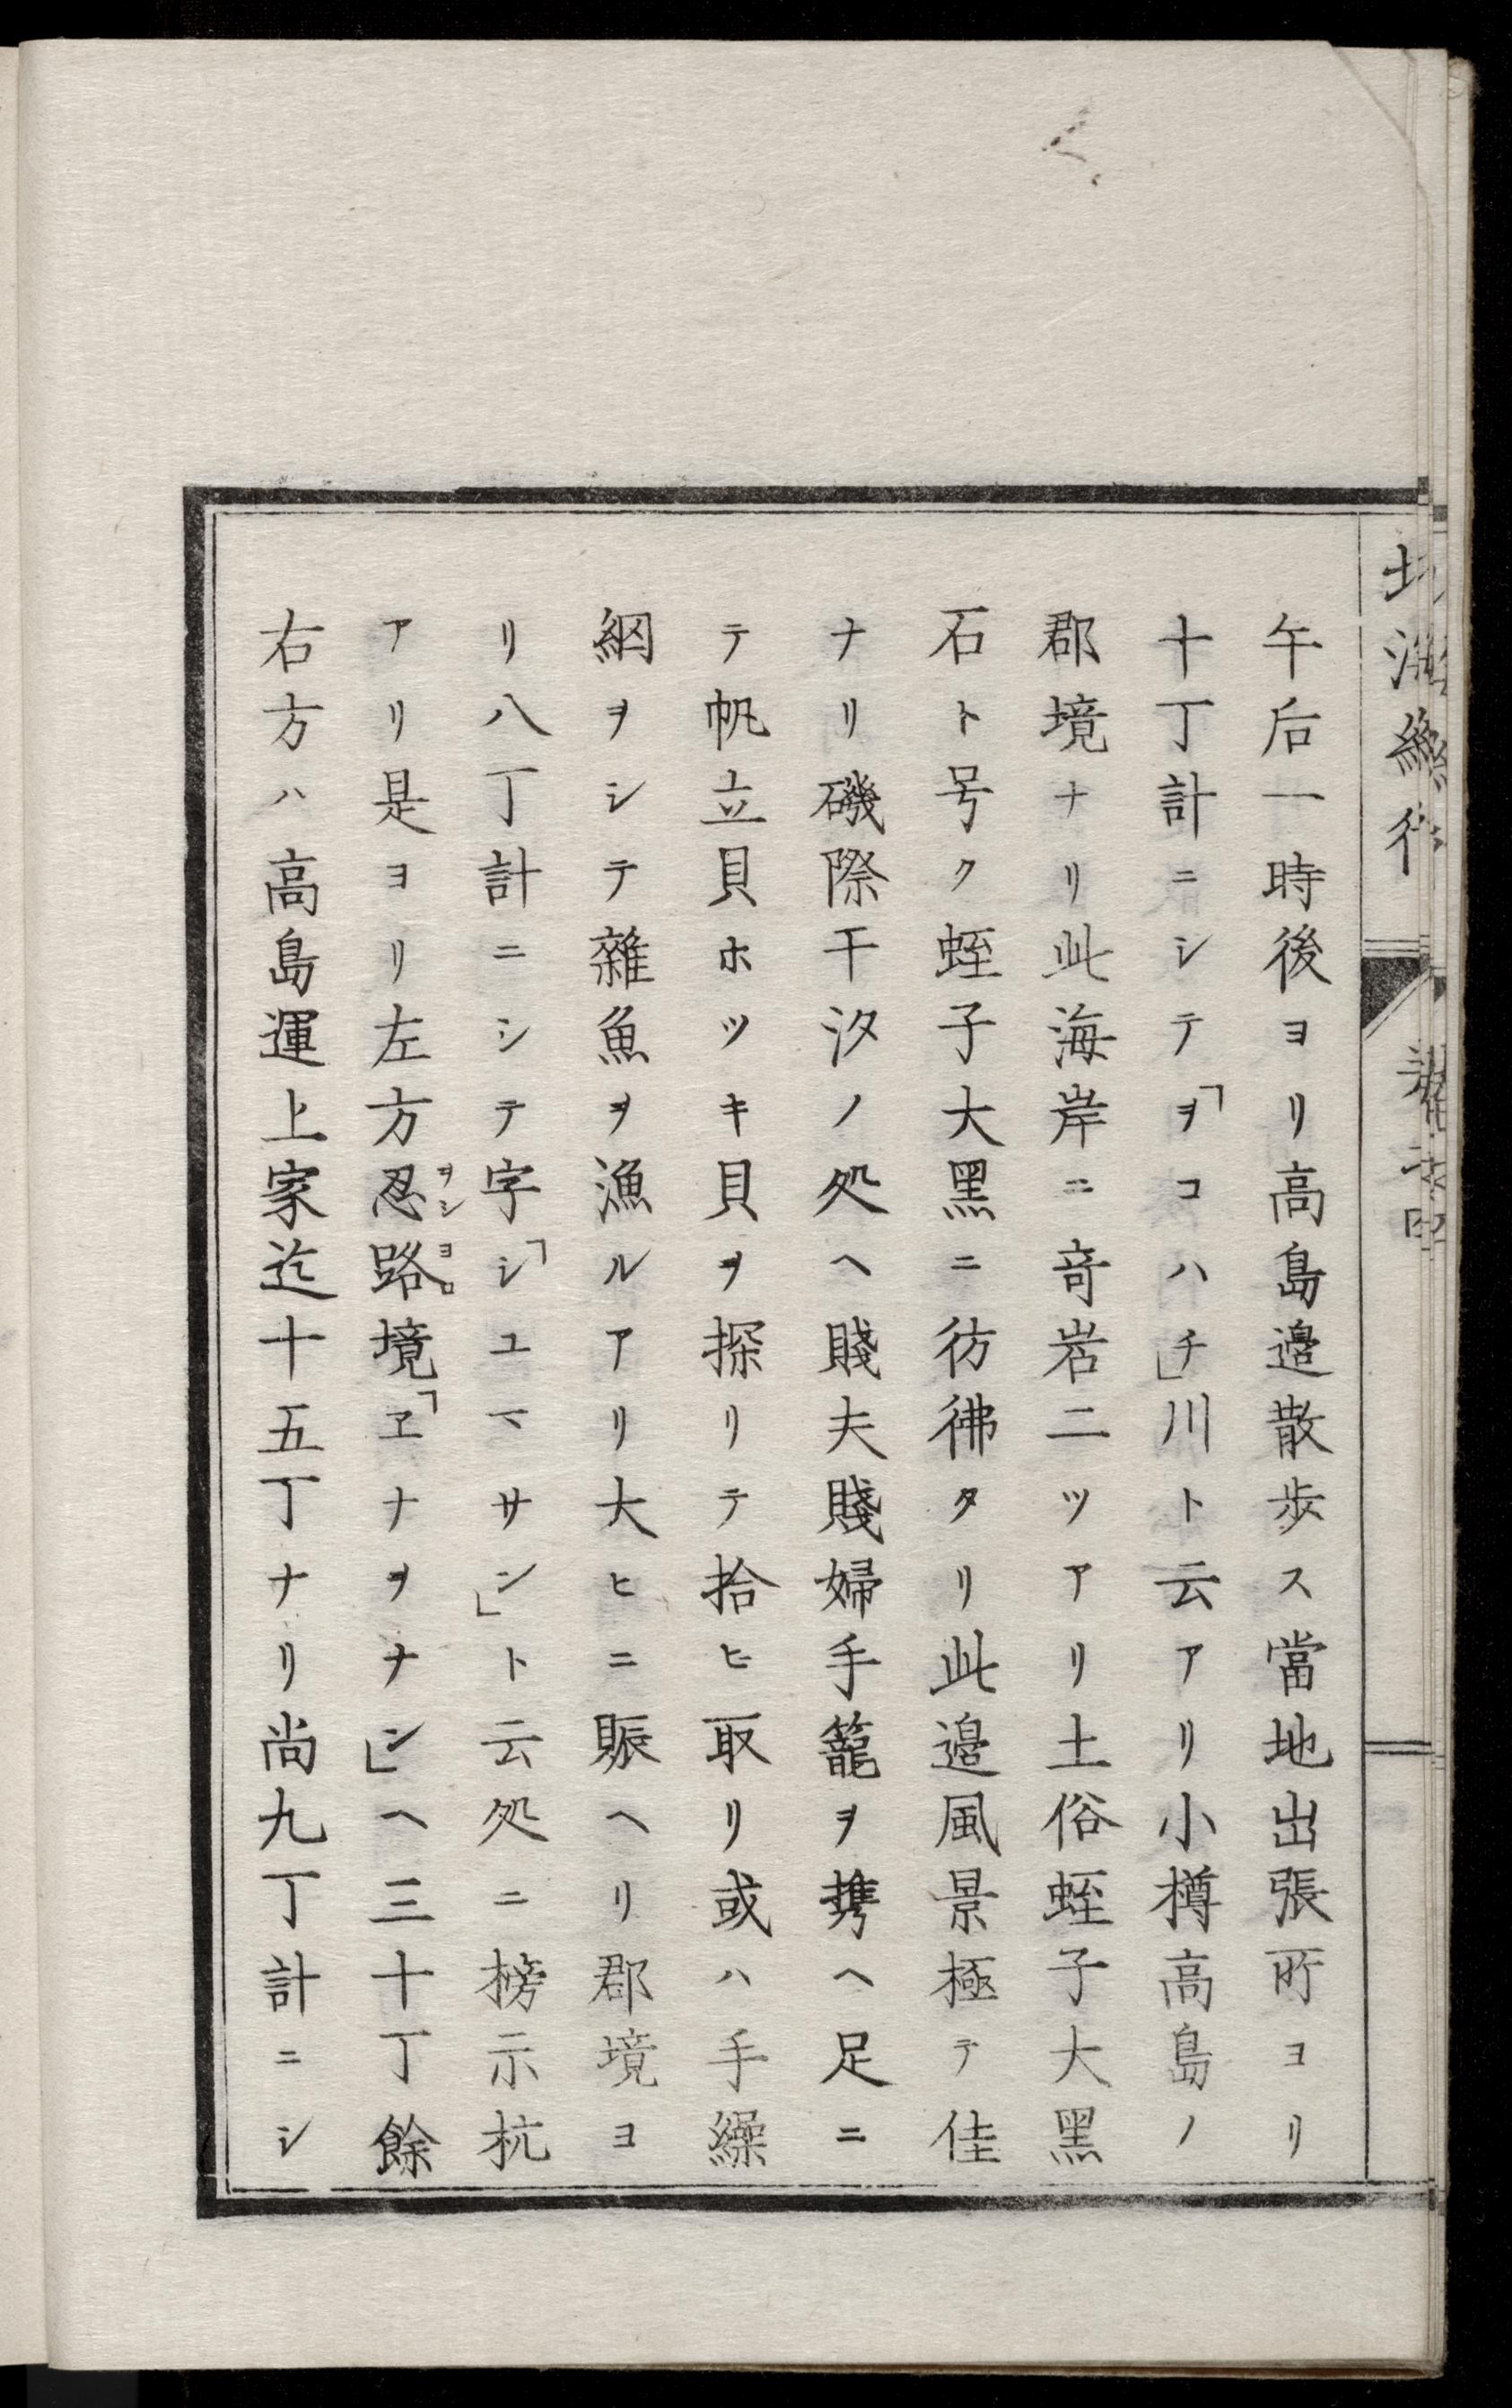 午后一時後ヨリ高島邉散歩ス當地出張所ヨリ
十丁計ニシテ「ヲコハチ」川ト云アリ小樽高島ノ
郡境ナリ此海岸ニ竒岩二ツアリ土俗蛭子大黒
石ト号ク蛭子大黒ニ彷彿タリ此邉風景極テ佳
ナリ磯際干汐ノ処ヘ賤夫賤婦手籠ヲ携ヘ足ニ
テ帆立貝ホツキ貝ヲ探リテ拾ヒ取リ或ハ手繰
網ヲシテ雜魚ヲ漁ルアリ大ヒニ賑ヘリ郡境ヨ
リ八丁計ニシテ字「シユマサン」ト云処ニ榜示杭
アリ是ヨリ左方忍路境「ヱナヲナシ」ヘ三十丁餘
右方ハ高島運上家迄十五丁ナリ尚九丁計ニシ